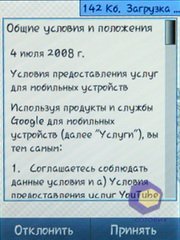 142 Кб. Загрузка ..
Общие условия и положения
4 июля 2008 г.
Условия предоставления услуг
для мобильных устройств
Используя продукты и службы
Google для мобильных
устройств (далее "Услуги"), вы
тем самым:
1. Соглашаетесь соблюдать
данные условия и а) Условия
предоставления услуг YouTube
Отклонить Принять